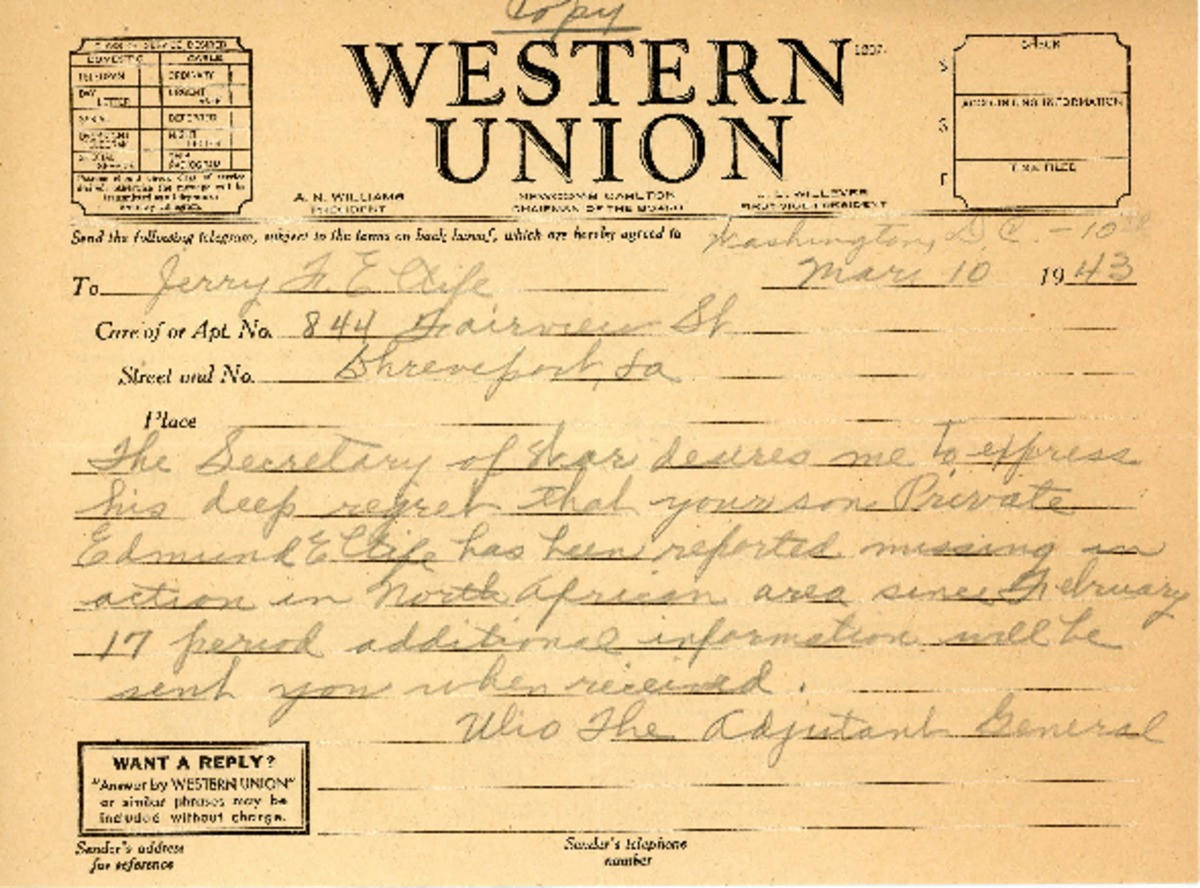 Copy
CLASS OF SERVICE DESIRED
DOMESTIC CABLE
TELEGRAM ORDINARY
DAY LETTER URGENT RATE
SERIAL DEFERRED
OVERNIGHT TELEGRAM NIGHT LETTER
SPECIAL SERVICE SHIP RADIOGRAM
WESTERN
UNION
1207
CHECK
ACCOUNTING INFORMATION
TIME FILED
A. N. WILLIAMS
PRESIDENT
NEWCOMB CARLTON
CHAIRMAN OF THE BOARD
J. C. WILLEVER
FIRST VICE-PRESIDENT
Send the following telegram, subject to the terms on back hereof, which are hereby agreed to
Washington, D.C. - 10
To Jerry F. Eltife Mar, 10 1943
Care of or Apt. No. 844 Fairview St
Street and No. Shreveport, La
Place
The Secretary of War desires me to express
his deep regret that your son Private
Edmund Eltife has been reported missing in
action in North African area since February
17 period additional information will be
sent you when received.
Ulio The Adjutant General
WANT A REPLY?
"Answer by WESTERN UNION"
or similar phrases may be
included without charge.
Sender's address
for reference
Sender's telephone
number